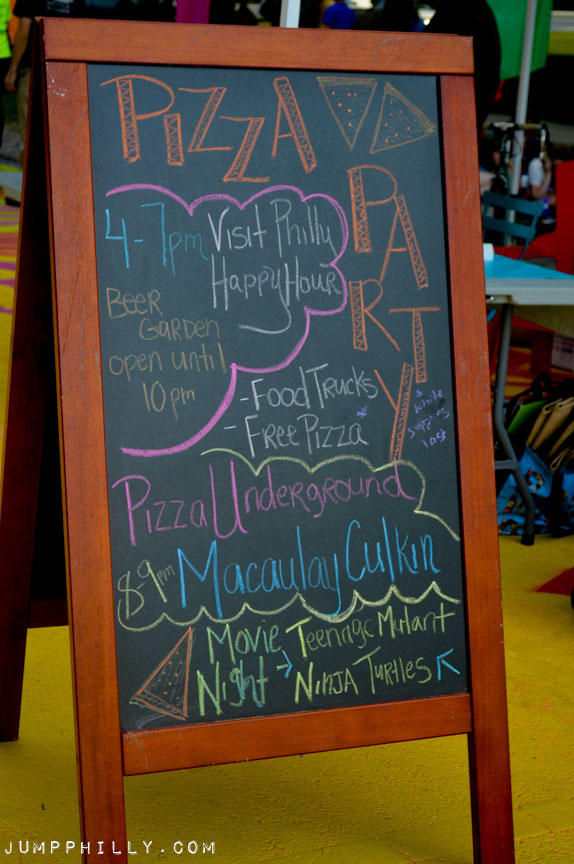 PIZZA
PARTY
4-7pm Visit Philly
Happy Hour
BEER
GARDEN
open until
10pm
-Food Trucks
-Free Pizza*
* While
supplies
last
Pizza Underground
8-9pm Macaulay Culkin
Movie Teenage Mutant
Night → Ninja Turtles
JUMPPHILLY.COM